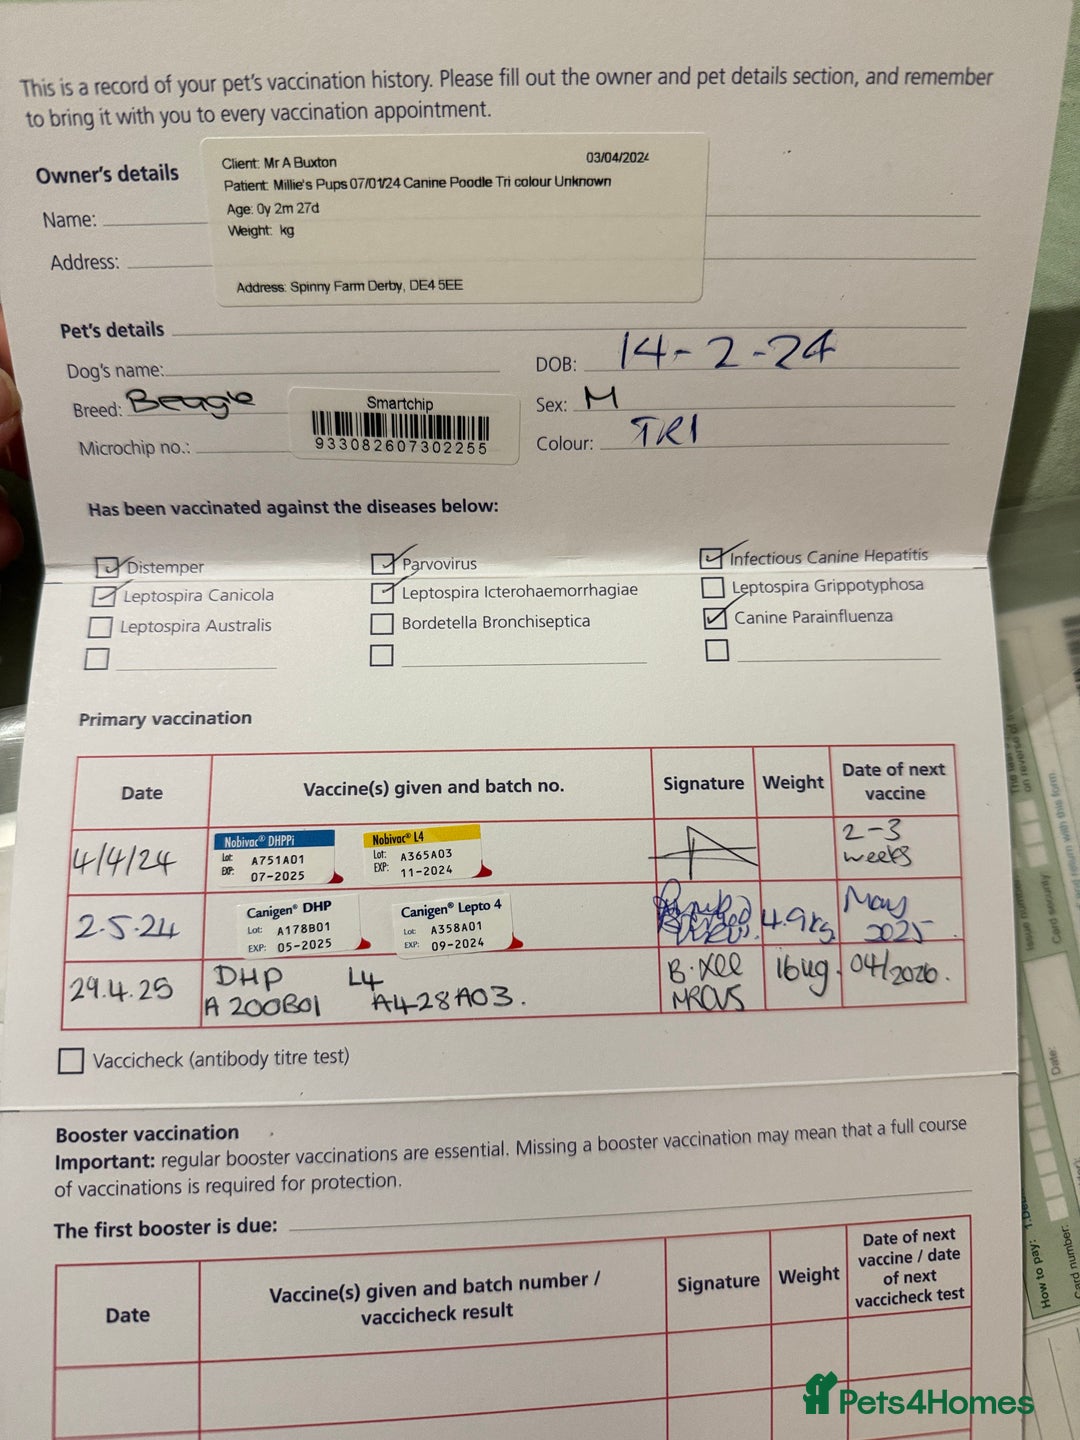 This is a record of your pet's vaccination history. Please fill out the owner and pet details section, and remember
to bring it with you to every vaccination appointment.
Owner's details
Client: Mr A Buxton 03/04/2024
Patient: Millie's Pups 07/01/24 Canine Poodle Tri colour Unknown
Age: 0y 2m 27d
Weight: kg
Address: Spinny Farm Derby, DE4 5EE
Name:
Address:
Pet's details
Dog's name:
DOB: 14-2-24
Breed: Beagle
Sex: M
Microchip no.:
Smartchip
933082607302255
Colour: TRI
Has been vaccinated against the diseases below:
Distemper Parvovirus Infectious Canine Hepatitis
Leptospira Canicola Leptospira Icterohaemorrhagiae Leptospira Grippotyphosa
Leptospira Australis Bordetella Bronchiseptica Canine Parainfluenza
Primary vaccination
Date Vaccine(s) given and batch no. Signature Weight Date of next
vaccine
4/4/24 Nobivac® DHPPi Lot: A751A01 EXP: 07-2025 Nobivac® L4 Lot: A365A03 EXP: 11-2024 2-3
weeks
2.5.24 Canigen® DHP Lot: A178B01 EXP: 05-2025 Canigen® Lepto 4 Lot: A358A01 EXP: 09-2024 4.9kg May
2025
29.4.25 DHP L4 MRCVS 16kg 04/2026.
A200B01 A428A03.
Vaccicheck (antibody titre test)
Booster vaccination
Important: regular booster vaccinations are essential. Missing a booster vaccination may mean that a full course
of vaccinations is required for protection.
The first booster is due:
Date Vaccine(s) given and batch number /
vaccicheck result Signature Weight Date of next
vaccine / date
of next
vaccicheck test
Issue number
Card security
Date:
How to pay:
Card number:
and return with this form.
on reverse of
Pets4Homes